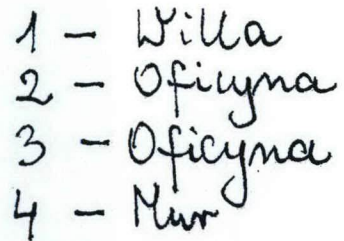 1 - Willa
2 - Oficyna
3 - Oficyna
4 - Mur